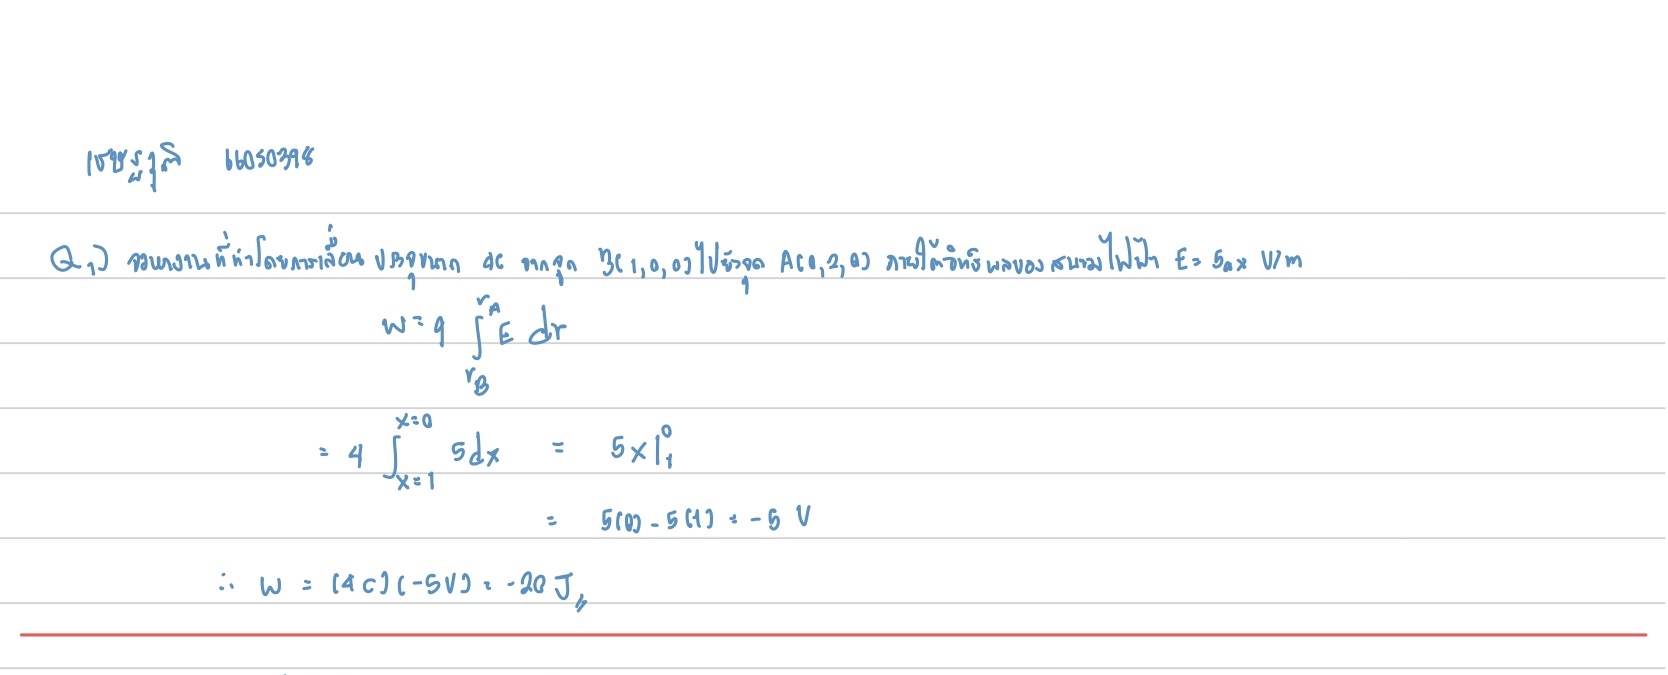 เชษฐวุฒิ 66050398
Q1) จงหางานที่ทำโดยการเลื่อน ประจุขนาด 4C จากจุด B(1,0,0) ไปยังจุด A(0,2,0) ภายใต้อิทธิพลของสนามไฟฟ้า E = 5ax V/m
W = q ∫_{rB}^{rA} E dr
= 4 ∫_{x=1}^{x=0} 5dx = 5x|_1^0
= 5(0) - 5(1) = -5 V
∴ W = (4C)(-5V) = -20 J